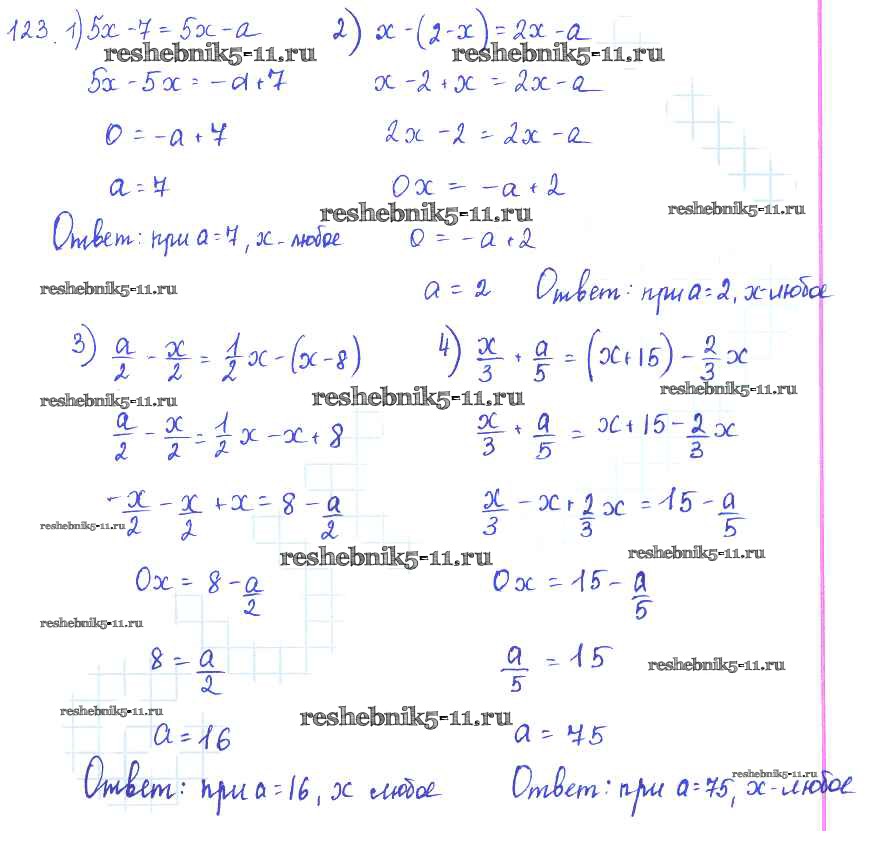 123. 1) 5x - 7 = 5x - a
2) x - (2 - x) = 2x - a
reshebnik5-11.ru
reshebnik5-11.ru
5x - 5x = -a + 7
x - 2 + x = 2x - a
0 = -a + 7
2x - 2 = 2x - a
a = 7
0x = -a + 2
reshebnik5-11.ru
reshebnik5-11.ru
Ответ: при a = 7, x - любое
0 = -a + 2
reshebnik5-11.ru
a = 2
Ответ: при a = 2, x - любое
3) a/2 - x/2 = 1/2 x - (x - 8)
4) x/3 + a/5 = (x + 15) - 2/3 x
reshebnik5-11.ru
reshebnik5-11.ru
reshebnik5-11.ru
a/2 - x/2 = 1/2 x - x + 8
x/3 + a/5 = x + 15 - 2/3 x
-x/2 - x/2 + x = 8 - a/2
x/3 - x + 2/3 x = 15 - a/5
reshebnik5-11.ru
reshebnik5-11.ru
reshebnik5-11.ru
0x = 8 - a/2
0x = 15 - a/5
reshebnik5-11.ru
8 = a/2
a/5 = 15
reshebnik5-11.ru
reshebnik5-11.ru
reshebnik5-11.ru
a = 16
a = 75
reshebnik5-11.ru
Ответ: при a = 16, x любое
Ответ: при a = 75, x - любое